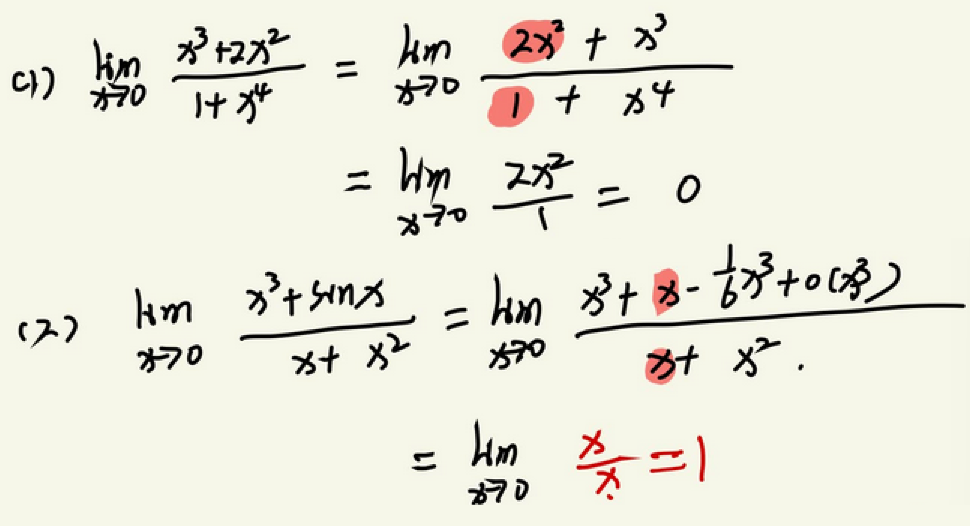 (1) lim x→0 (x³+2x²)/(1+x⁴) = lim x→0 (2x² + x³)/(1 + x⁴)
= lim x→0 2x²/1 = 0
(2) lim x→0 (x³+sinx)/(x+x²) = lim x→0 (x³+x-1/6x³+o(x³))/(x+x².)
= lim x→0 x/x = 1